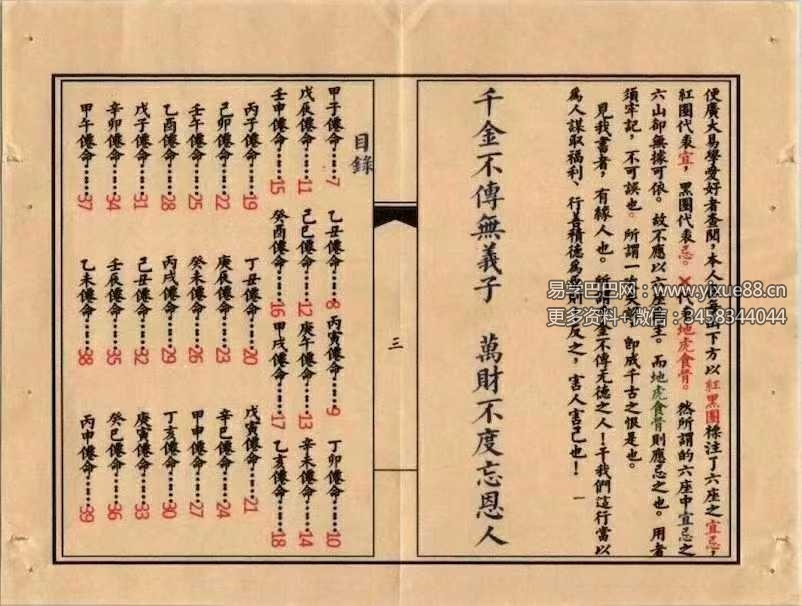 便廣大易學愛好者查閱,本人山下方以紅黑圈標注了六座之宜忌,
紅圈代表宜,黑圈代表忌。X代表地虎食骨。然所謂的六座中宜忌之
六山卻無據可依。故不應以六座而地虎食骨則應忌之也。用者
須牢記,不可誤也。所謂一卽成千古之恨是也。
見我書者,有緣人也。所謂千金不傳无德之人!干我們這行當以
為人謀取福利、行善積德為反之,害人害己也! 一
千金不傳無義子 萬財不度忘恩人
三
目錄
甲子僊命……7 乙丑僊命……8 丙寅僊命……9 丁卯僊命……10
戊辰僊命……11 己巳僊命……12 庚午僊命……13 辛未僊命……14
壬申僊命……15 癸酉僊命……16 甲戌僊命……17 乙亥僊命……18
丙子僊命……19 丁丑僊命……20 戊寅僊命……21
己卯僊命……22 庚辰僊命……23 辛巳僊命……24
壬午僊命……25 癸未僊命……26 甲申僊命……27
乙酉僊命……28 丙戌僊命……29 丁亥僊命……30
戊子僊命……31 己丑僊命……32 庚寅僊命……33
辛卯僊命……34 壬辰僊命……35 癸巳僊命……36
甲午僊命……37 乙未僊命……38 丙申僊命……39
易学巴巴网:www.yixue88.cn
更多资料+微信:3458344044